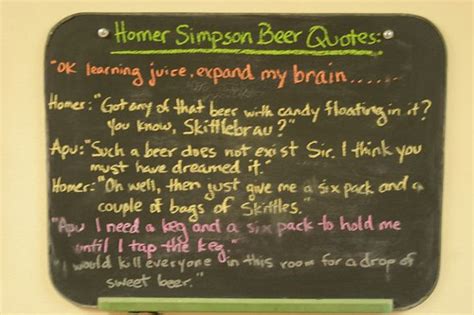 Homer Simpson Beer Quotes:
"OK learning juice, expand my brain......
Homer: "Got any of that beer with candy floating in it?
You know, Skittlebrau?"
Apu: "Such a beer does not exist Sir. I think you
must have dreamed it."
Homer: "Oh well, then just give me a six pack and a
couple of bags of Skittles."
"Apu I need a keg and a six pack to hold me
until I tap the keg."
"I would kill everyone in this room for a drop of
sweet beer."